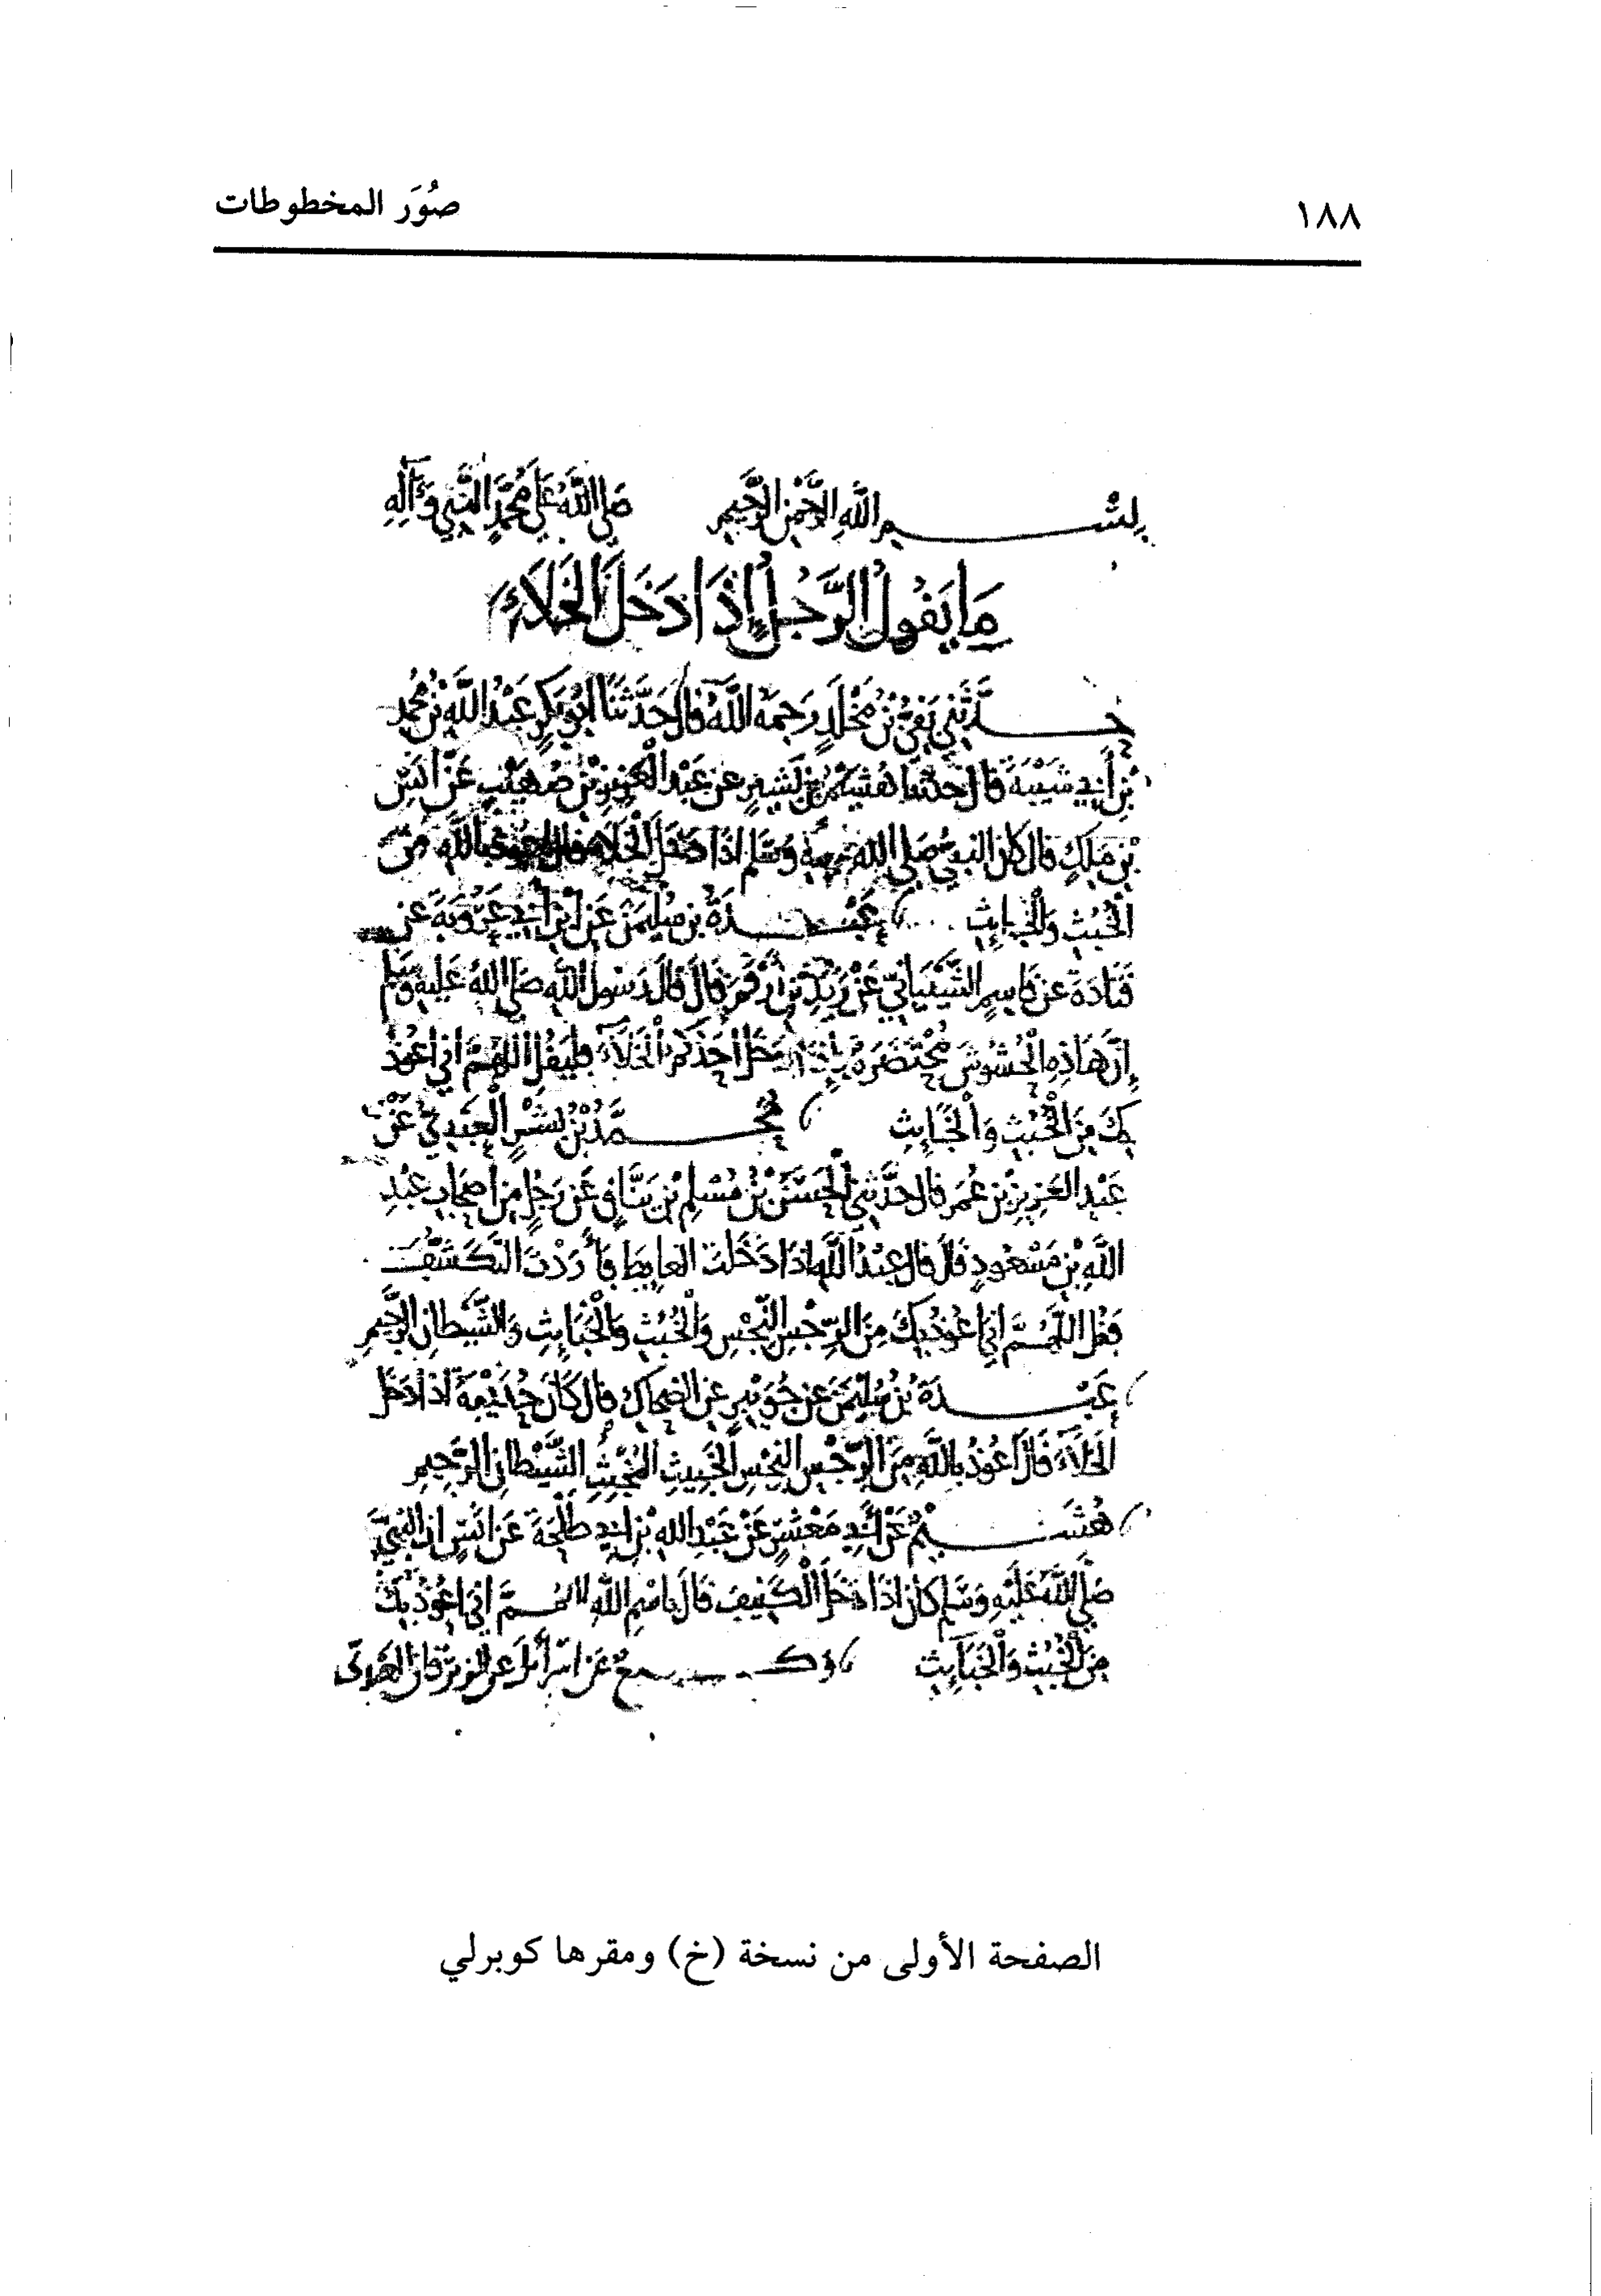 ١٨٨
صُوَر المخطوطات
بسم الله الرحمن الرحيم صلى الله على محمد النبي وآله
ما يقول الرجل إذا دخل الخلاء
حدثني بقي بن مخلد رحمه الله قال حدثنا أبو بكر عبد الله بن محمد
بن أبي شيبة قال حدثنا هشيم بن بشير عن عبد العزيز بن صهيب عن أنس
بن ملك قال كان النبي صلى الله عليه وسلم اذا دخل الخلاء قال اعوذ بالله من
الخبث والخبايث عبدة بن سليمن عن ابن أبي عروبة عن
قتادة عن قاسم الشيباني عن زيد بن أرقم قال قال رسول الله صلى الله عليه وسلم
إن هاذه الحشوش محتضرة فإذا دخل أحدكم الخلاء فليقل اللهم اني اعوذ
بك من الخبث والخبايث محمد بن بشر العبدي عن
عبد العزيز بن عمر قال حدثني الحسن بن مسلم بن يناق عن رجل من اصحاب عبد
الله بن مسعود قال قال عبد الله اذا دخلت الغايط فأردت التكشف
فقل اللهم اني اعوذ بك من الرجس النجس والخبث والخبايث والشيطان الرجيم
عبدة بن سليمن عن جويبر عن الضحاك قال كان حذيفة اذا دخل
الخلاء قال أعوذ بالله من الرجس النجس الخبيث المخبث الشيطان الرجيم
هشيم عن أبي معشر عن عبد الله بن أبي طلحة عن أنس ان النبي
صلى الله عليه وسلم كان اذا دخل الكنيف قال باسم الله اللهم اني اعوذ بك
من الخبث والخبايث وكيع عن اسرائل عن الزبرقان العبدي
الصفحة الأولى من نسخة (خ) ومقرها كوبرلي